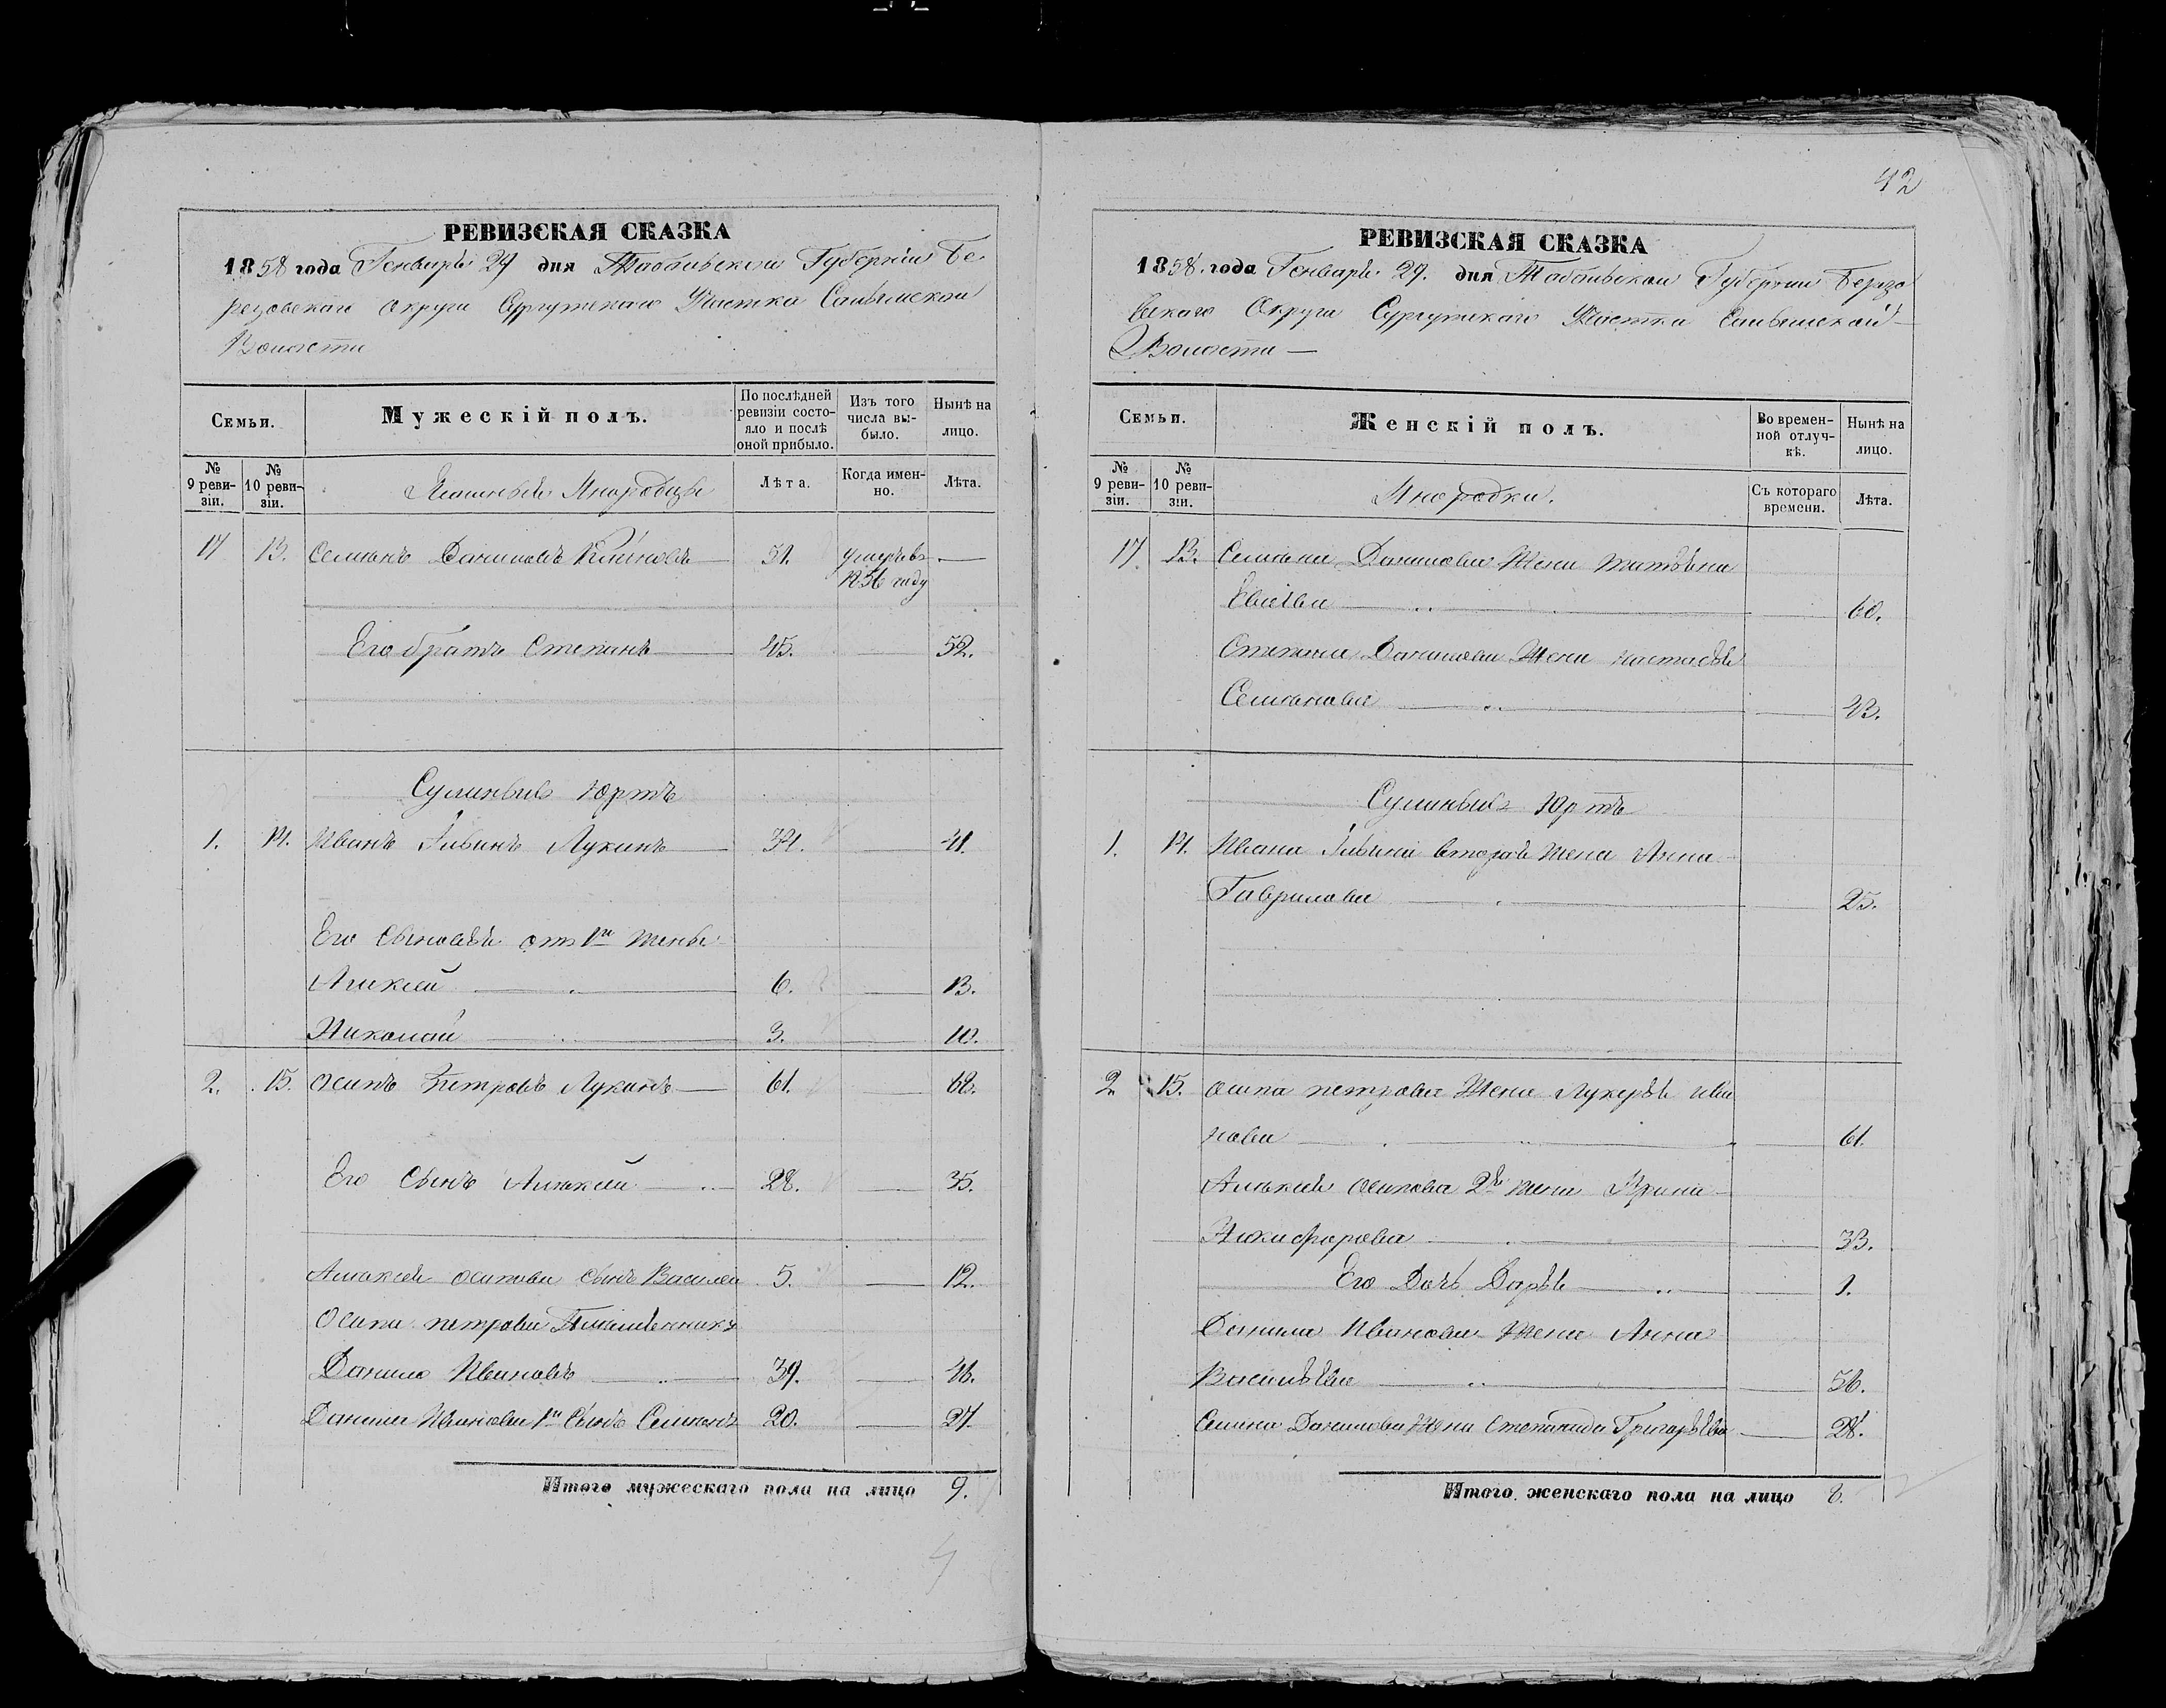 42
РЕВИЗСКАЯ СКАЗКА
1858 года Генваря 29 дня Тобольской Губерніи Бе
резовскаго округа Сургутскаго Участка Салымской
Волости
Семьи.
Мужескій полъ.
По послѣдней ревизіи состояло и послѣ оной прибыло.
Изъ того числа выбыло.
Нынѣ на лицо.
№ 9 ревизіи.
№ 10 ревизіи.
Инородцы
Лѣта.
Когда именно.
Лѣта.
17 13. Семіонъ Даниловъ 51. умеръ въ —
1856 году
Его братъ Степанъ 45. — 52.
Юртъ
1. 14. Иванъ Лукинъ 34. — 41.
Его Сыновья отъ 1й жены
Алексей 6. — 13.
Николай 3. — 10.
2. 15. Осипъ Петровъ Лукинъ 61. — 68.
Его Сынъ Алексей 28. — 35.
Алексея Осипова Сынъ Василей 5. — 12.
Осипа Петрова Племенникъ
Данило Ивановъ 39. — 46.
Данила Иванова 1й Сынъ Семіонъ 20. — 27.
Итого мужескаго пола на лицо 9.
РЕВИЗСКАЯ СКАЗКА
1858. года Генваря 29. дня Тобольской Губерніи Березо
вскаго Округа Сургутскаго Участка Салымской
Волости —
Семьи.
Женскій полъ.
Во временной отлучкѣ.
Нынѣ на лицо.
№ 9 ревизіи.
№ 10 ревизіи.
Инородки.
Съ котораго времени.
Лѣта.
17. 13. Семіона Данилова Жена
— 60.
Степана Данилова Жена Настасья
Семіонова — 43.
Юртъ
1. 14. Ивана вторая жена Анна
Гаврилова — 25.
2 15. Осипа Петрова Жена Лукерья Ива
нова — 61.
Алексея Осипова 2я жена Ирина
Никифорова — 33.
Его Дочь Дарья — 1.
Данила Иванова Жена Анна
Васильева — 56.
Семіона Данилова Жена Степанида Григорьева — 28.
Итого женскаго пола на лицо 8.